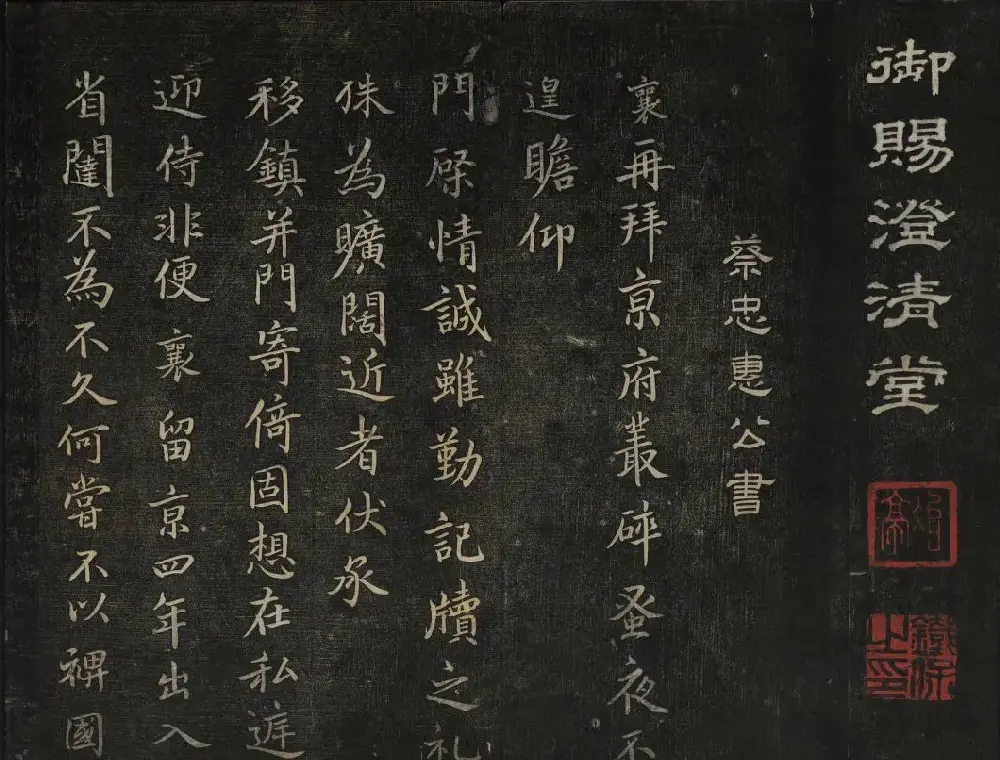 御賜澄清堂
冶亭
鐵保之印
蔡忠惠公書
襄再拜亰府叢碎蚤夜不
遑瞻仰
門屏情誠雖勤記牘之礼
殊為曠闊近者伏承
移鎮并門寄倚固想在私
迎侍非便襄留亰四年出入
省闥不為不久何嘗不以裨國